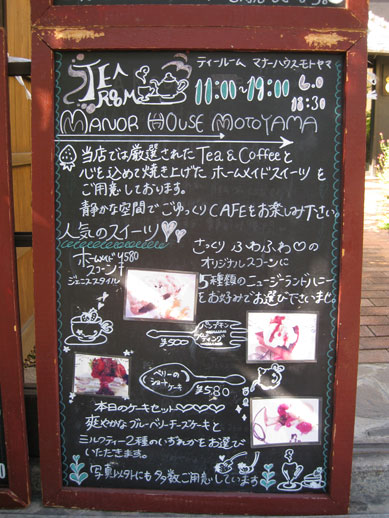 ティールーム マナーハウスモトヤマ
TEA ROOM
11:00~19:00 L.O 18:30
MANOR HOUSE MOTOYAMA
当店では厳選されたTea & Coffeeと
心を込めて焼き上げた ホームメイドスイーツを
ご用意しております。
静かな空間でごゆっくりCAFEをお楽しみ下さい。
人気のスイーツ
ホームメイド ¥580
スコーン
ジェニススタイル
さっくり ふわふわ♡の
オリジナルスコーンに
5種類のニュージーランドハニー
をお好みでお選び下さいませ。
パンプキン
プディング
¥500
ベリーの
ショートケーキ
¥580
本日のケーキセット
爽やかなブルーベリーチーズケーキと
ミルクティー2種のいずれかをお選び
いただきます。
写真以外にも多数ご用意しています